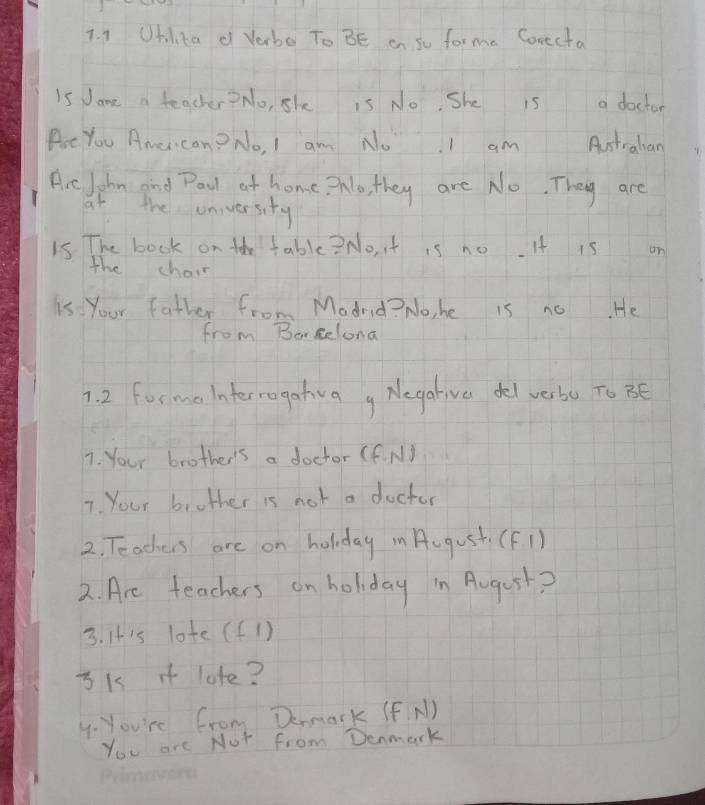 1.1 Utilita el Verbo To BE en su forma Correcta
Is Jane a teacher? No, she is No. She is a doctor
Are You American? No, I am No. I am Australian
Are John and Paul at home? No, they are No. They are
at the university
Is The book on the table? No, it is no. It is on
the chair
is Your father from Madrid? No, he is no. He
from Barcelona
1.2 forma Interrogativa y Negativa del verbo To BE
1. Your brother's a doctor (f.N)
1. Your brother is not a doctor
2. Teachers are on holiday in August. (F.1)
2. Are teachers on holiday in August?
3. It's late (f1)
3 Is it late?
4. You're from Denmark (F.N)
You are Not from Denmark
Primavera